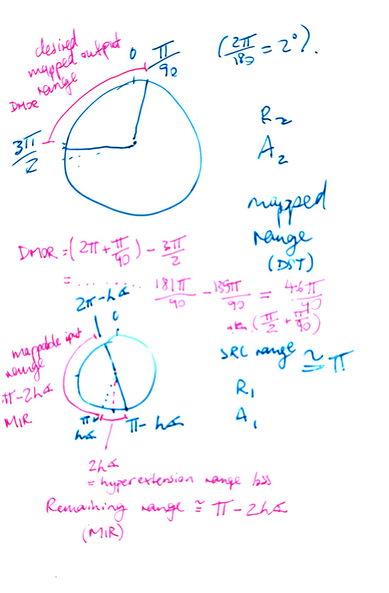 desired
mapped output
range
DMOR
0
π/90
(2π/180 = 2°).
3π/2
R₂
A₂
mapped
range
(DST)
DMOR = (2π + π/90) − 3π/2
= ........ 181π/90 − 135π/90 = 46π/90
aka (π/2 + π/90)
2π − h∡
0
mappable input
range
π − 2h∡
MIR
π − h∡
SRC range ≅ π
R₁
A₁
2h∡
= hyperextension range loss
Remaining range ≅ π − 2h∡
(MIR)